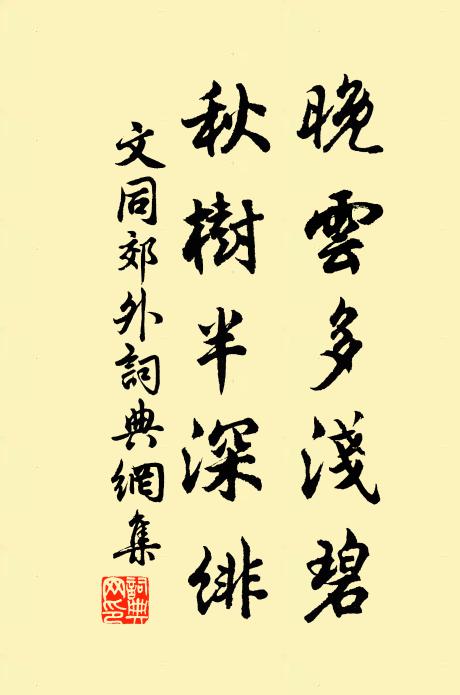 晚雲多淺碧
秋樹半深緋
文同郊外詞典網集
詞典網印